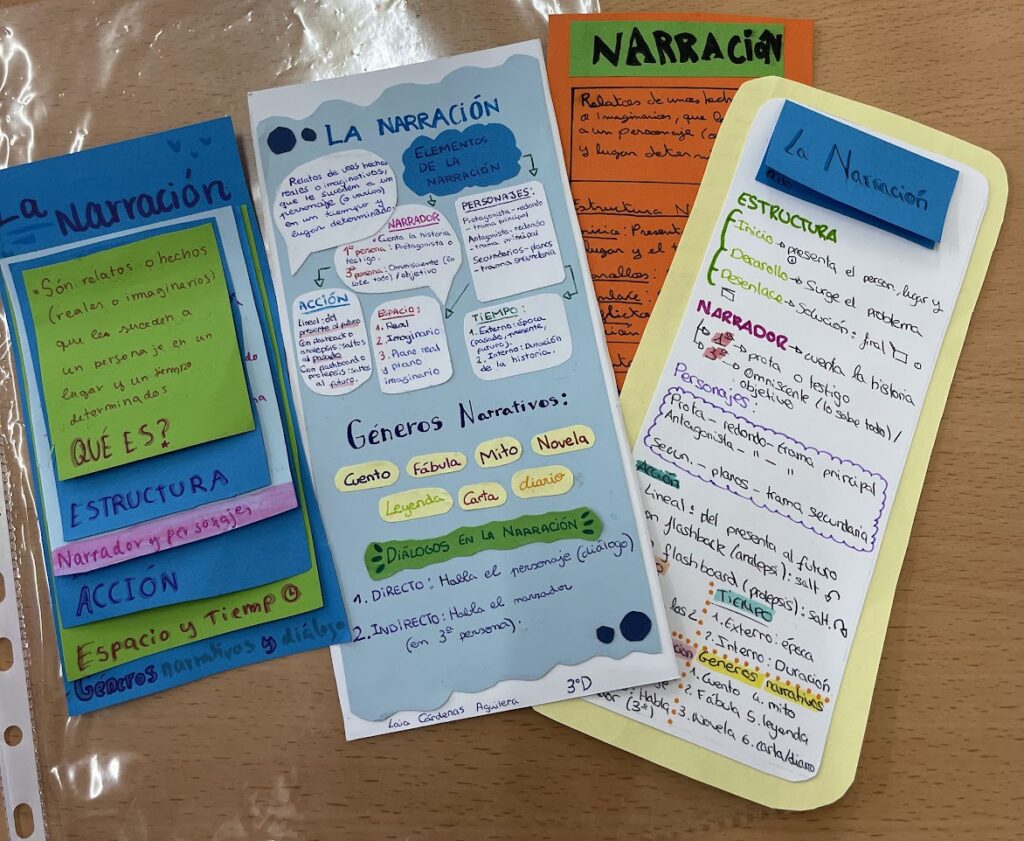 La Narración
• Són relatos o hechos
(reales o imaginarios)
que les suceden a
un personaje en un
lugar y un tiempo
determinados
QUÉ ES?
ESTRUCTURA
Narrador y personajes
ACCIÓN
Espacio y Tiemp
Géneros narrativos y diálogo
LA NARRACIÓN
Relatos de unos hechos
reales o imaginativos,
que le suceden a un
personaje (o varios)
en un tiempo y
lugar determinado.
ELEMENTOS
DE LA
NARRACIÓN
NARRADOR
• Cuenta la historia
1ª persona: Protagonista o
testigo.
3ª persona: Omnisciente (lo
sabe todo)/objetivo
PERSONAJES:
Protagonista-redondo
-trama principal
Antagonista-redondo
-trama principal
Secundarios-planos
-tramma secundaria
ACCIÓN
Lineal: del
presente al futuro
Con flashback o
analepsis: saltos
al pasado
Con flashboard o
prolepsis: saltos
al futuro.
ESPACIO:
1. Real
2. Imaginario
3. Plano real
y plano
imaginario
TIEMPO:
1. Externo: época
(pasado, presente,
futuro).
2. Interno: Duración
de la historia.
Géneros Narrativos:
Cuento Fábula Mito Novela
Leyenda Carta diario
DIÁLOGOS EN LA NARRACIÓN
1. DIRECTO: Habla el personaje (diálogo)
2. INDIRECTO: Habla el narrador
(en 3ª persona).
Laia Cárdenas Aguilera 3ºD
NARRACIÓN
Relatos de unos hech
o Imaginarios, que l
a un personaje (o
y lugar deter
Estructura N
Inicio: Present
lugar y el t
La Narración
ESTRUCTURA
Inicio → presenta el person, lugar y
Desarollo → Surge el problema
Desenlace → Solución: final o
NARRADOR → cuenta la historia
1ª → prota o testigo
3ª → Omniscente (lo sabe todo)/
objetivo
Personajes:
Prota - redondo- trama principal
Antagonista - " - "
Secun. - planos - trama secundaria
Acción
Lineal: del presenta al futuro
on flashback (analepsi): salt.
flashboard (prolepsis): salt.
TIEMPO
los 2 1. Externo: época
2. Interno: Duración
Géneros narrativos
1. Cuento 4. mito
2. Fábula 5. leyenda
Habla 3. Novela 6. carta/diario
or (3ª)